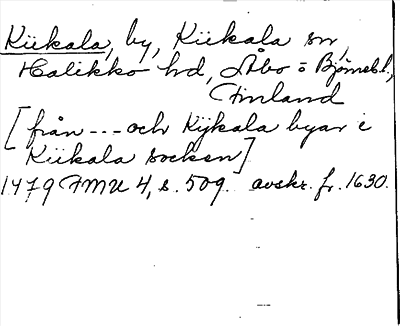 Kiikala, by, Kiikala sn,
Halikko hd, Åbo o Björneb. l.,
Finland
[från --- och Kijkala byar i
Kiikala socken]
1479 FMU 4, s. 509. avskr. fr. 1630.